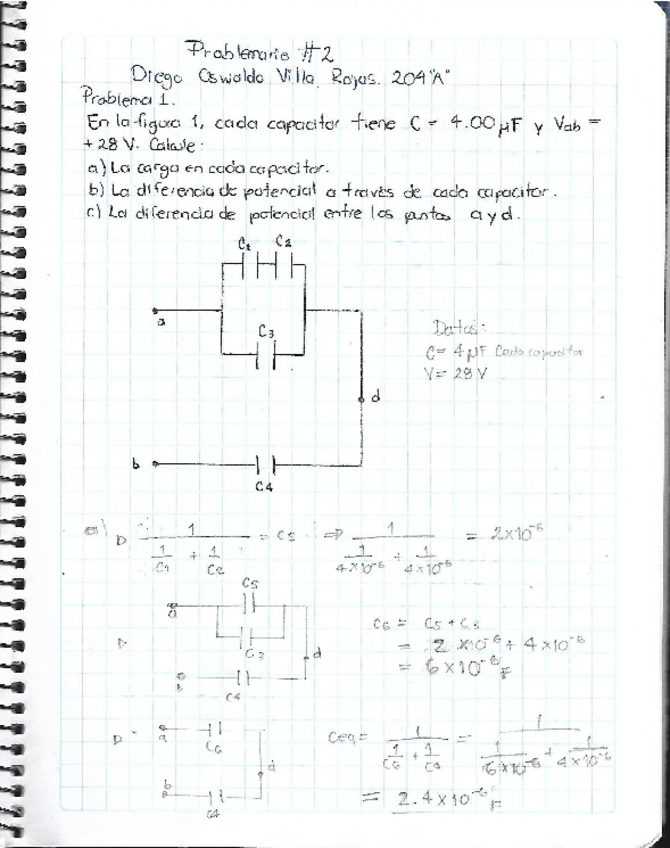 Problemario #2
Diego Oswaldo Villa Rojas. 204"A"
Problema 1.
En la figura 1, cada capacitor tiene C = 4.00 μF y Vab =
+28 V. Calcule:
a) La carga en cada capacitor.
b) La diferencia de potencial a través de cada capacitor.
c) La diferencia de potencial entre los puntos a y d.
C1 C2
a
C3
Datos:
C = 4 μF Cada capacitor
V = 28 V
d
b
C4
a) D 1 / (1/C1 + 1/C2) = C5 ⇒ 1 / (1/4×10⁻⁶ + 1/4×10⁻⁶) = 2×10⁻⁶
C5
a
C6 = C5 + C3
C3
= 2×10⁻⁶ + 4×10⁻⁶
d
= 6×10⁻⁶ F
b
C4
D a
C6
Ceq = 1 / (1/C6 + 1/C4) = 1 / (1/6×10⁻⁶ + 1/4×10⁻⁶)
d
b
C4
= 2.4×10⁻⁶ F